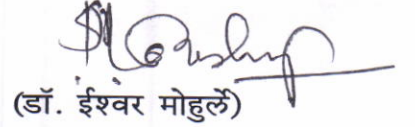 (डॉ. ईश्वर मोहुर्ले)